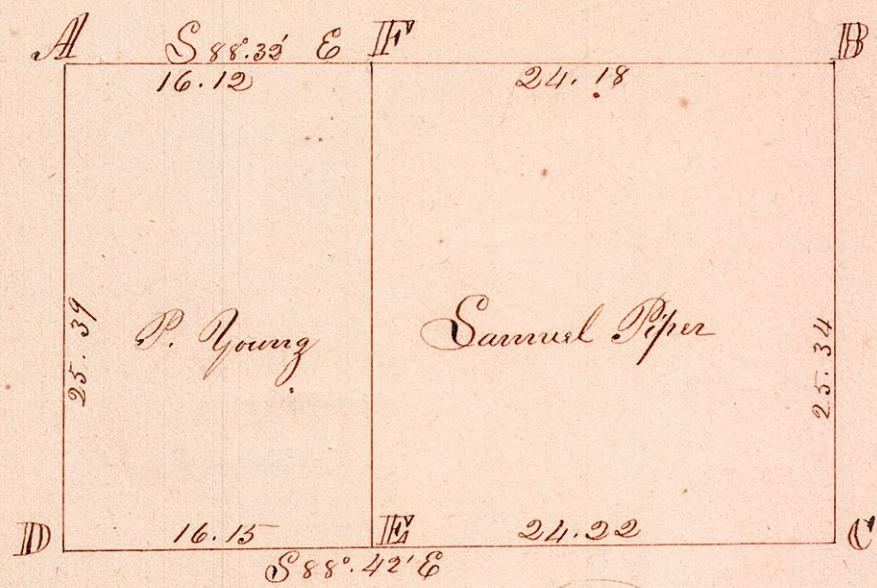 A S 88°.32' E F B
16.12 24.18
25.39
P. Young
Samuel Piper
25.34
D 16.15 E 24.22 C
S 88°.42' E